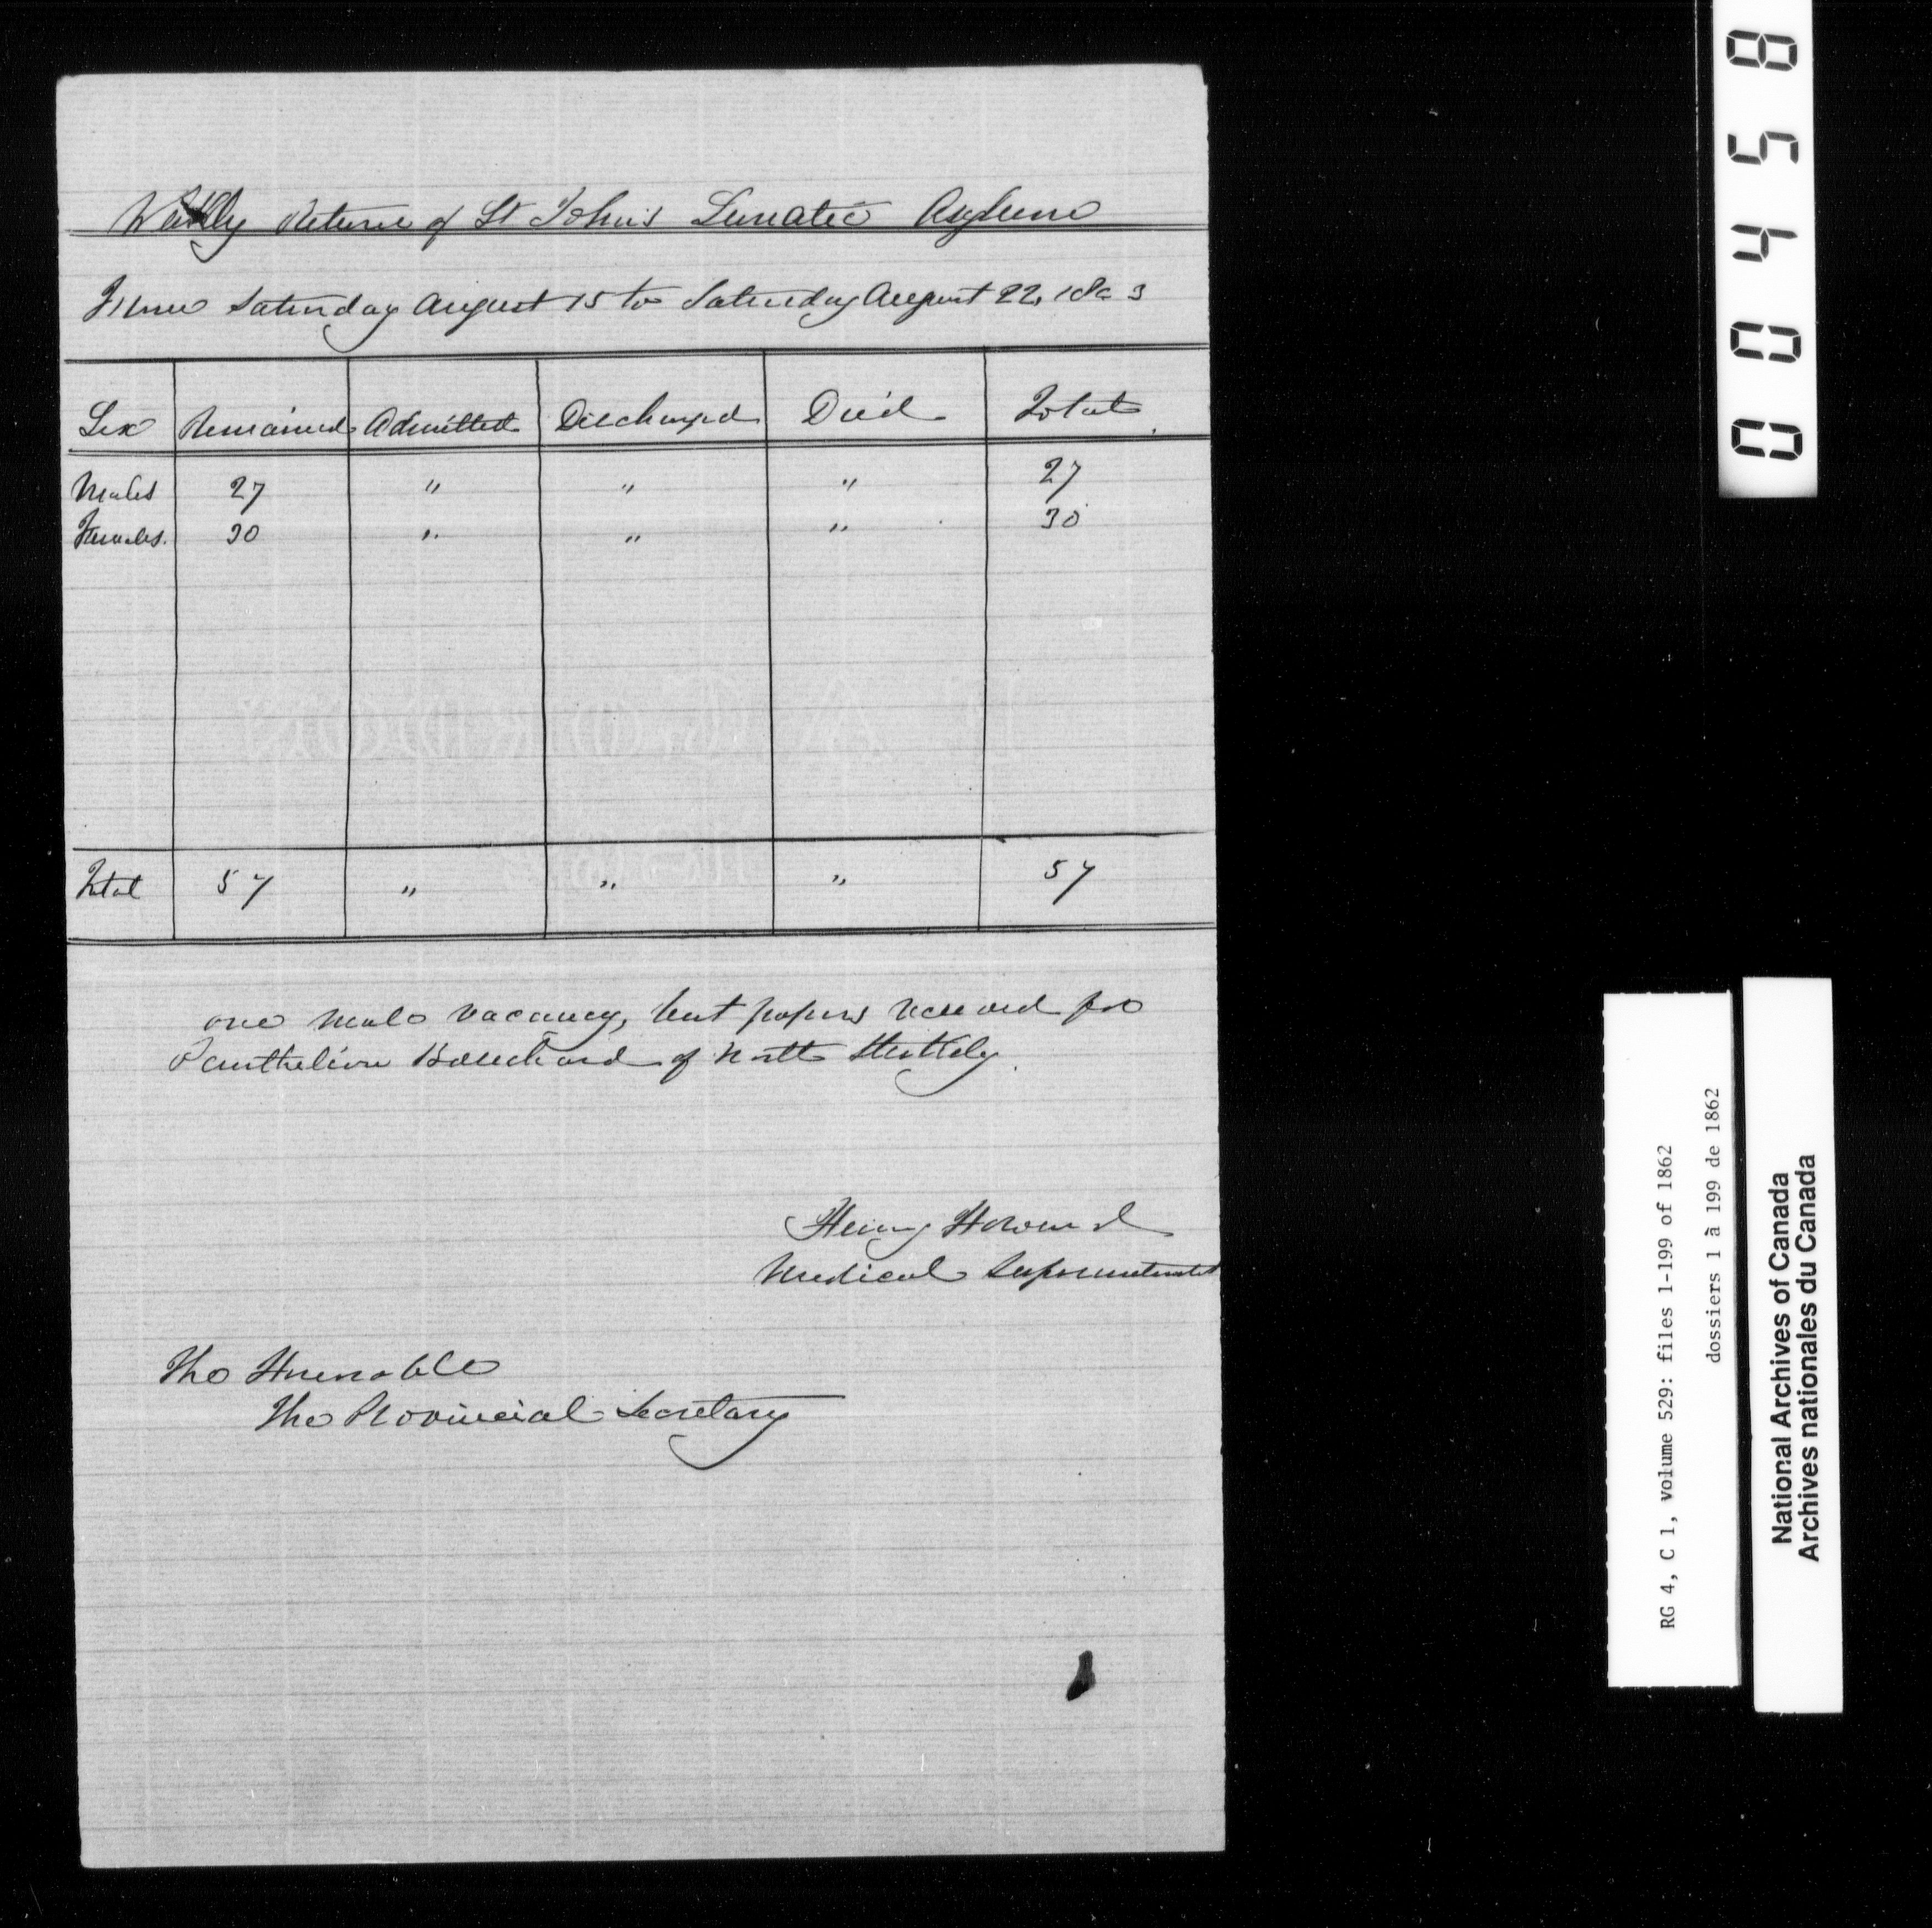 Weekly Return of St John's Lunatic Asylum
From Saturday August 15 to Saturday August 22, 1863
Sex Remained Admitted Discharged Died Total
Males 27 " " " 27
Females. 30 " " " 30
Total 57 " " " 57
one male vacancy, but papers received for
Bouchard of North Stukely.
Henry Howard
Medical Superintendent
The Honorable
The Provincial Secretary
00458
RG 4, C 1, volume 529: files 1-199 of 1862
dossiers 1 à 199 de 1862
National Archives of Canada
Archives nationales du Canada